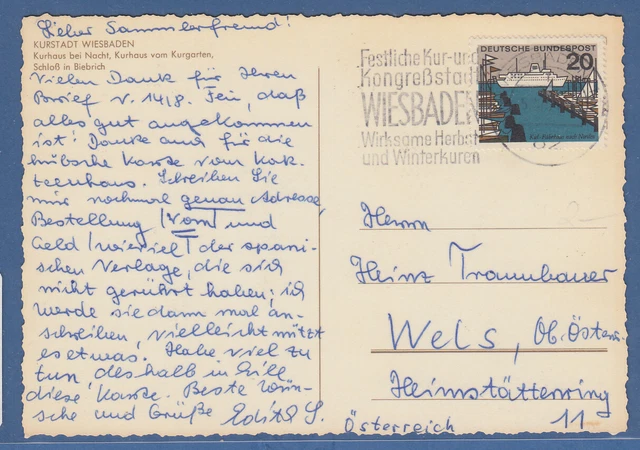 Lieber Sammlerfreund!
KURSTADT WIESBADEN
Kurhaus bei Nacht, Kurhaus vom Kurgarten,
Schloß in Biebrich
Vielen Dank für Ihren
Brief v. 14/8. Fein, daß
alles gut angekommen
ist! Danke auch für die
hübsche Karte vom Kak-
teenhaus. Schreiben Sie
mir nochmal genau Adresse,
Bestellung (Vom) und
Geld (wieviel) der spani-
schen Verlage, die sich
nicht gerührt haben; ich
werde sie dann mal an-
schreiben, vielleicht nützt
es etwas. Habe viel zu
tun deshalb in Eile
diese Karte. Beste Wün-
sche und Grüße Edith S.
Festliche Kur-und
Kongreßstadt
WIESBADEN
Wirksame Herbst-
und Winterkuren
DEUTSCHE BUNDESPOST
20
62
Herrn
Heinz Traunbauer
Wels, Ob. Österr.
Heimstättenring
11
Österreich